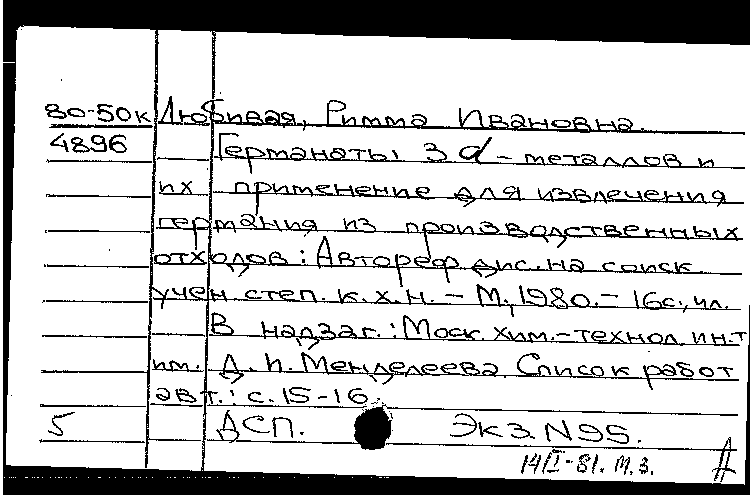 80-50к Любивая, Римма Ивановна.
4896 Германаты 3d-металлов и
их применение для извлечения
германия из производственных
отходов: Автореф. дис. на соиск.
учен. степ. к.х.н. - М, 1980. - 16с., ил.
В надзаг.: Моск. хим.-технол. ин.т
им. Д. И. Менделеева. Список работ
авт.: с. 15-16.
5 ДСП. Экз. N95.
14/I-81. М.З.